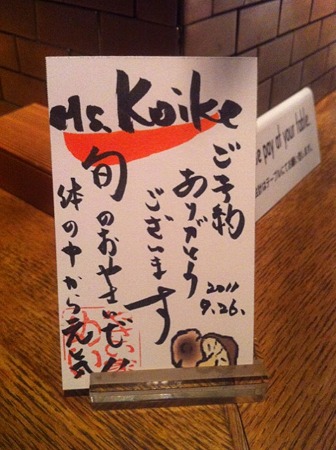 Ms. Koike
ご予約
ありがとう
ございます
2011
9.26.
旬のおやさいで
体の中から元気
pay at your table.